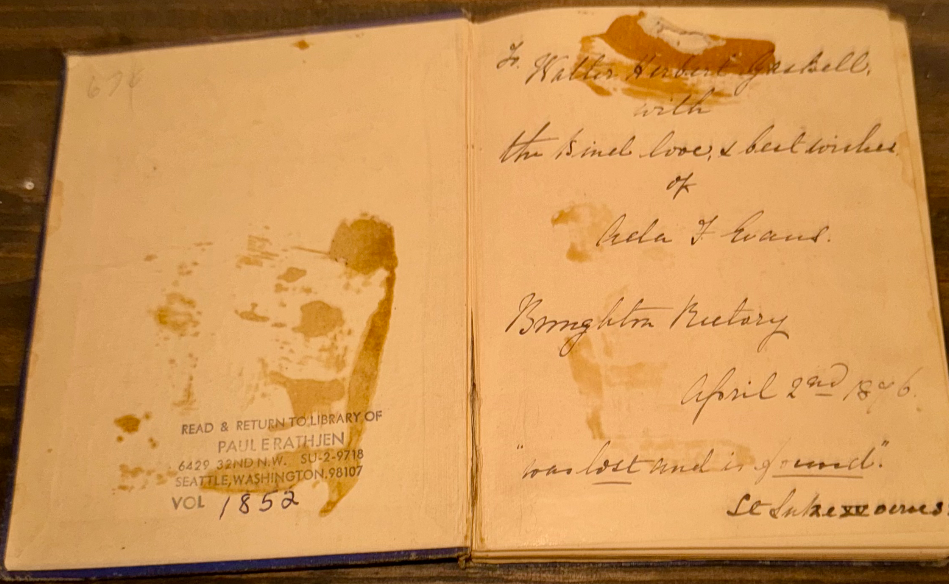 READ & RETURN TO LIBRARY OF
PAUL E RATHJEN
6429 32ND N.W. SU-2-9718
SEATTLE, WASHINGTON, 98107
VOL 1852
To Walter Herbert Gaskell,
with
the kind love, & best wishes
of
Ada F Evans.
Rectory
April 2nd
"was lost and is found".
St Luke XV